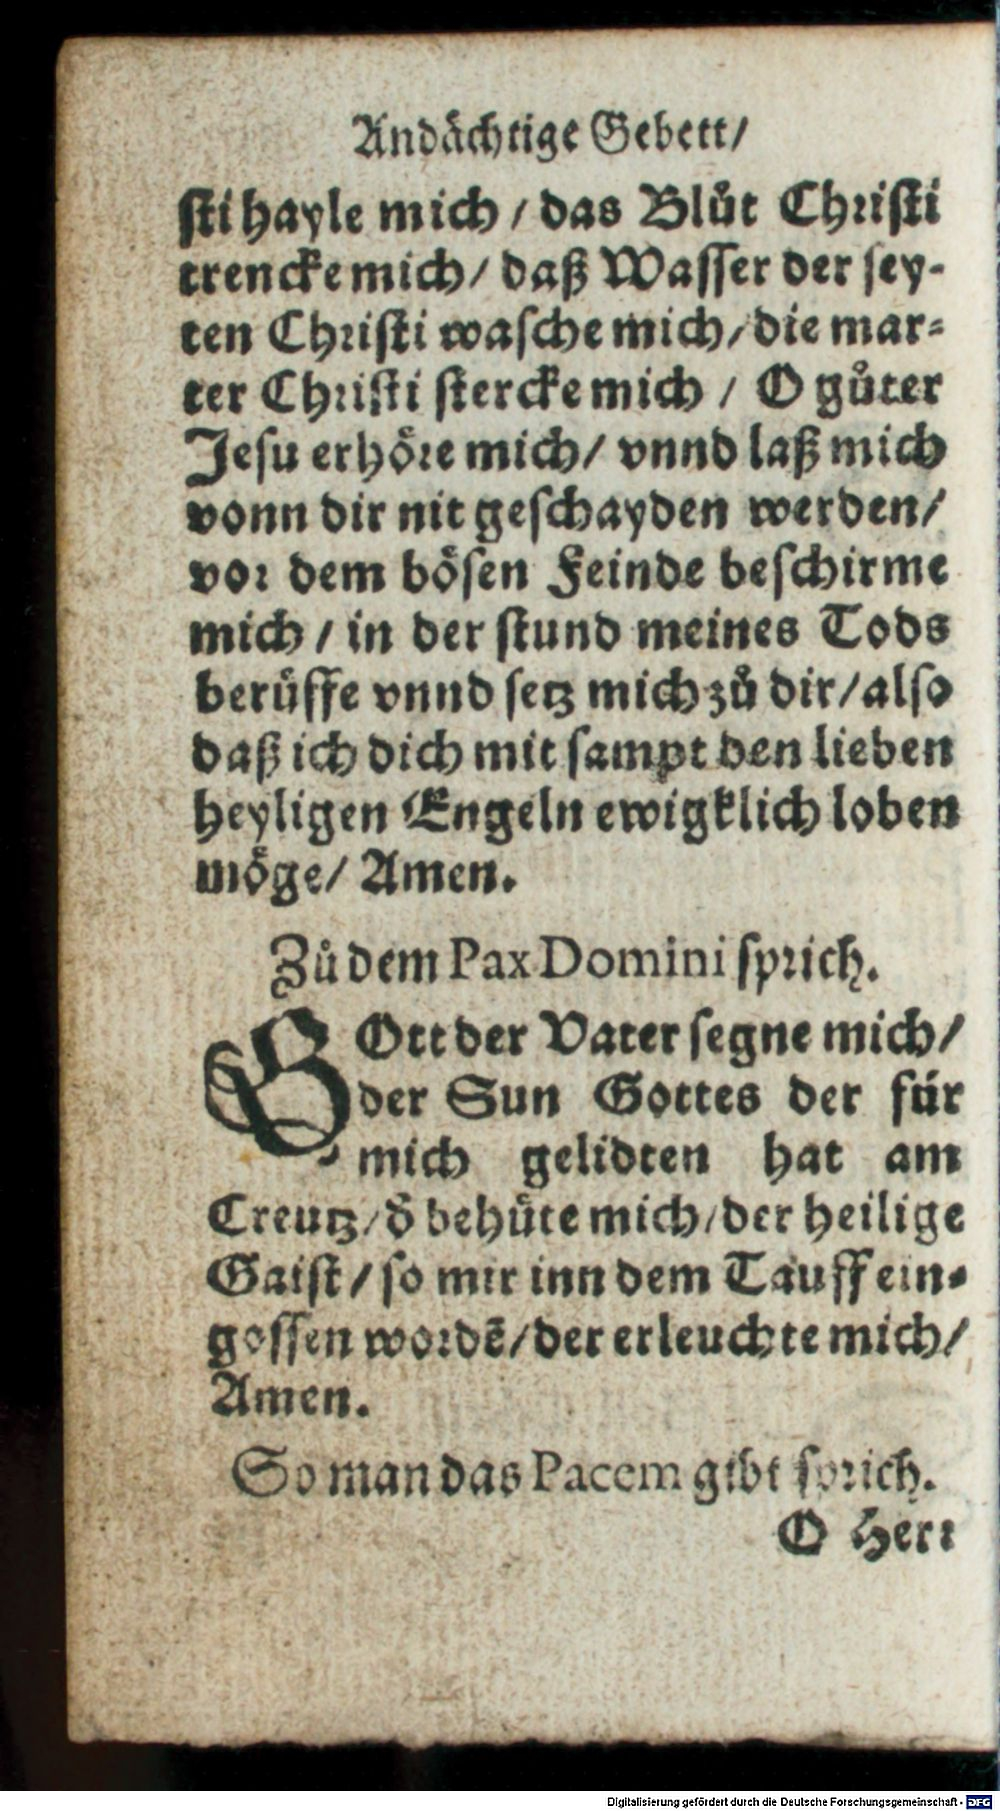 Andächtige Gebett/
sti hayle mich / das Blůt Christi
trencke mich / daß Wasser der sey-
ten Christi wasche mich / die mar-
ter Christi stercke mich / O gůter
Jesu erhöre mich / vnnd laß mich
vonn dir nit geschayden werden /
vor dem bösen Feinde beschirme
mich / in der stund meines Tods
berüffe vnnd setz mich zů dir / also
daß ich dich mit sampt den lieben
heyligen Engeln ewigklich loben
möge / Amen.
Zů dem Pax Domini sprich.
GOtt der Vater segne mich /
der Sun Gottes der für
mich gelidten hat am
Creutz / d̄ behüte mich / der heilige
Gaist / so mir inn dem Tauff ein-
gossen wordē / der erleuchte mich /
Amen.
So man das Pacem gibt sprich.
O Herr
Digitalisierung gefördert durch die Deutsche Forschungsgemeinschaft - DFG